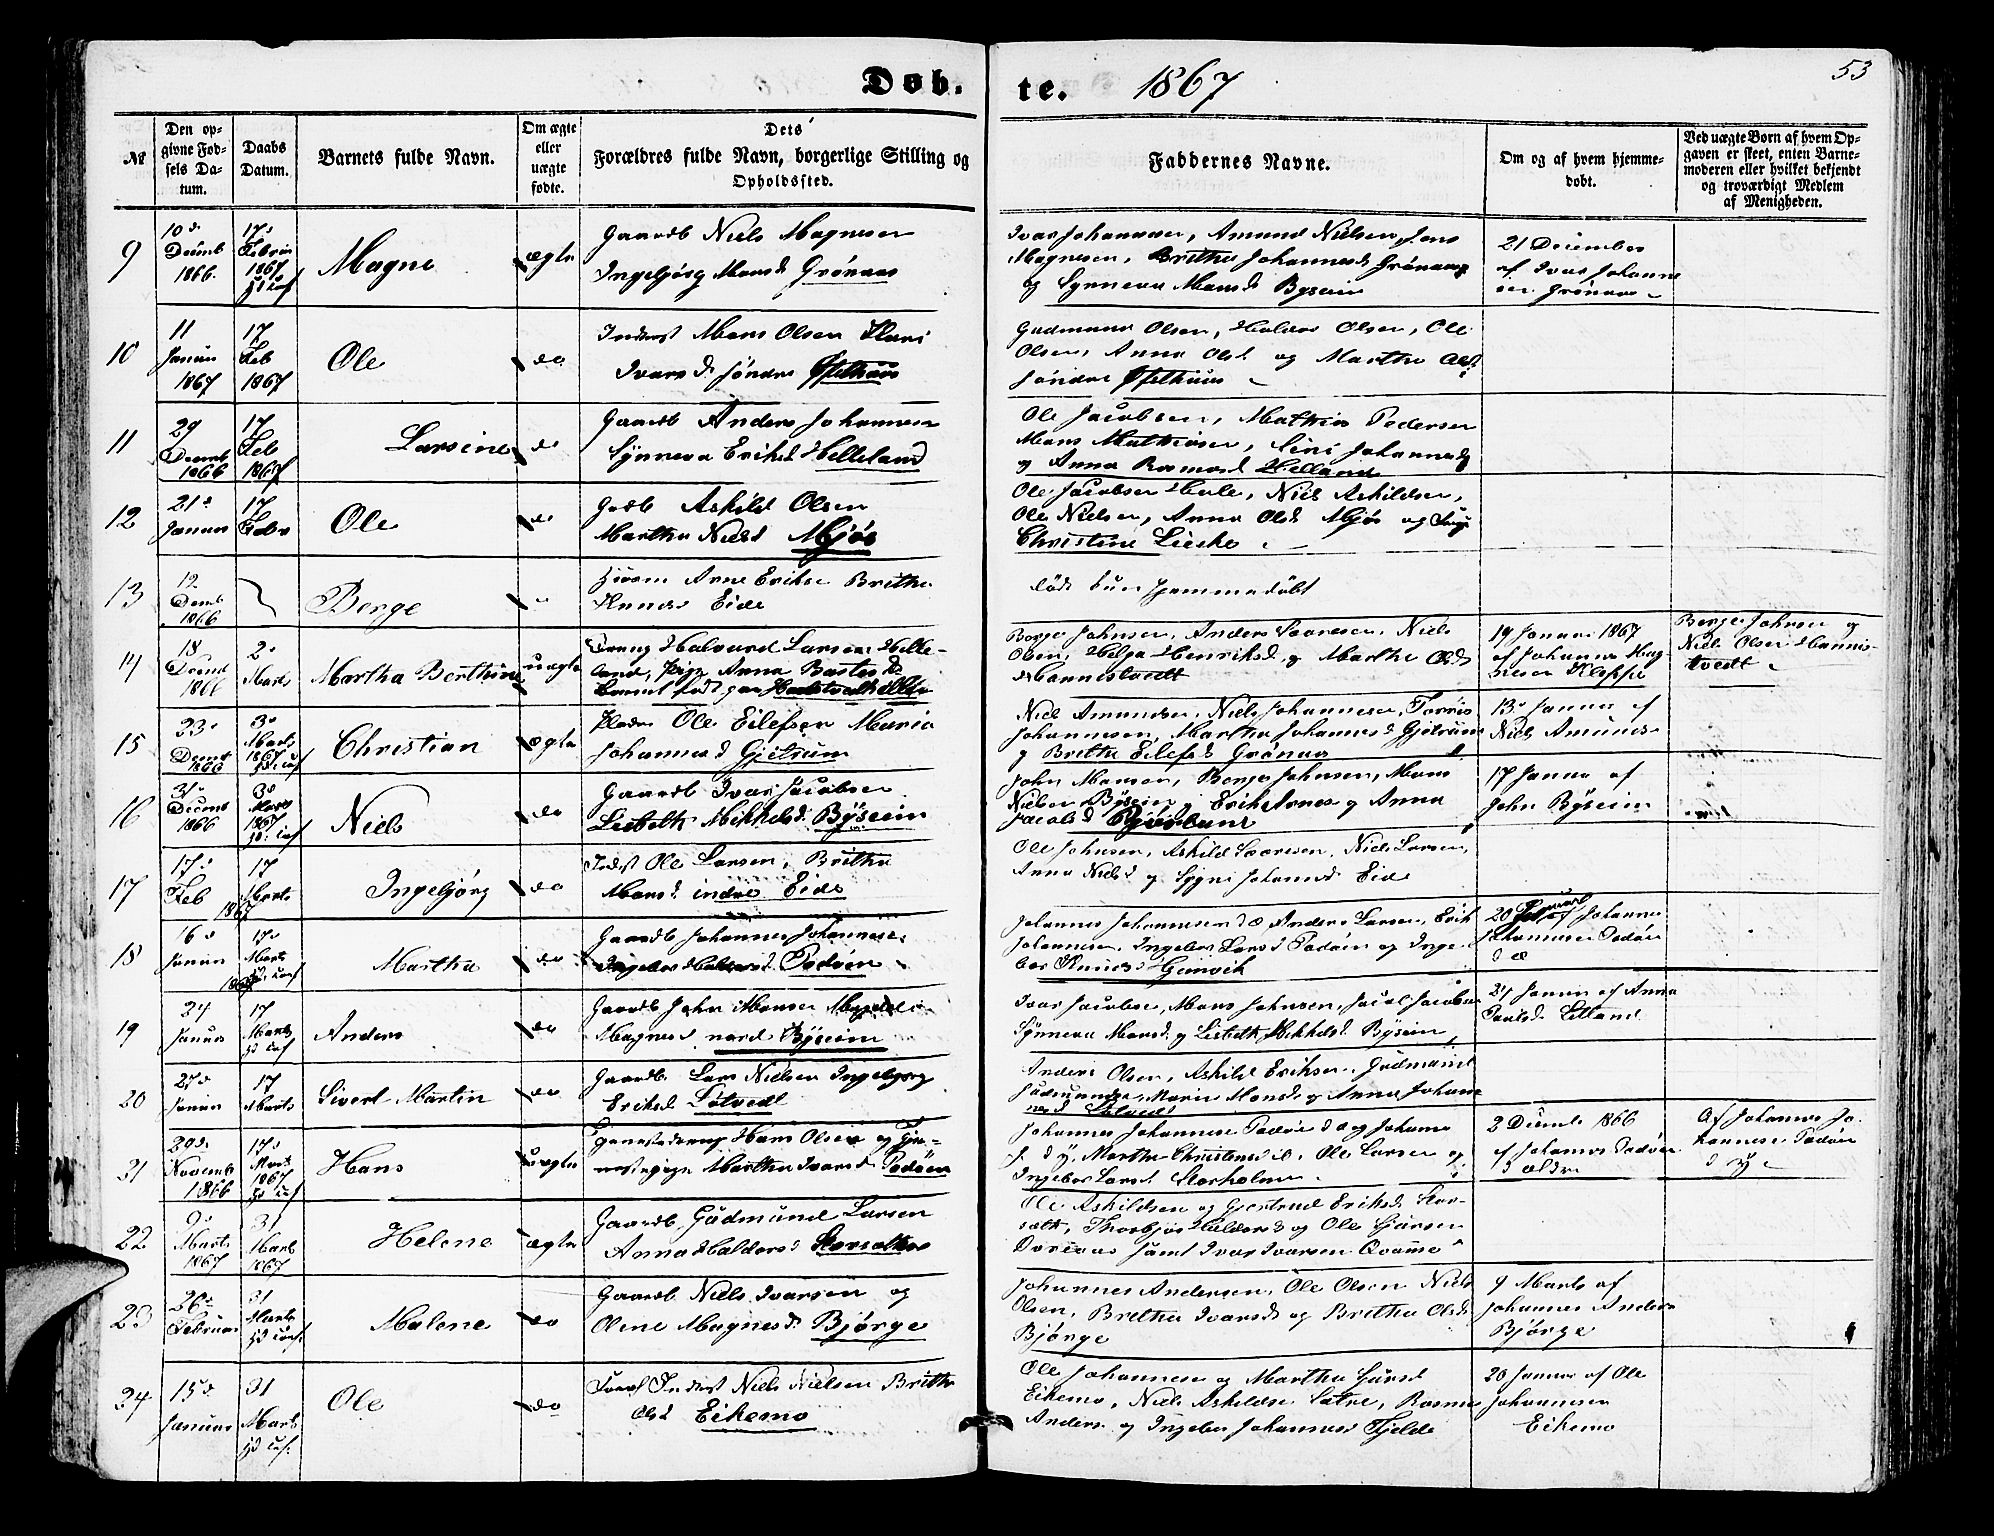 Døb.
te. 1867
53
№
Den op-
givne Fød-
sels Da-
tum.
Daabs
Datum.
Barnets fulde Navn.
Om ægte
eller
uægte
fødte.
Dets
Forældres fulde Navn, borgerlige Stilling og
Opholdssted.
Faddernes Navne.
Om og af hvem hjemme-
døbt.
Ved uægte Børn af hvem Op-
gaven er skeet, enten Barne-
moderen eller hvilket bekjendt
og troværdigt Medlem
af Menigheden.
9
10d
Decemb
1866.
17d
1867
Magne
ægte
Gaardb Niels Magnesen
Ingebjørg Mansd Grønaas
Ivar Johannesen, Amund Nielsen, Jens
Magnesen, Britha Johannesd Grønaas
og Synneva Mansd Byseim
21 December
af Ivar Johanne
sen Grønaas
10
11
Januar
1867
17
Feb
1867
Ole
do
Inderst Mons Olsen Kari
Ivarsd søndre Øfsthuus
Gudmund Olsen, Haldor Olsen, Ole
Olsen, Anna Olsd og Martha Olsd
søndre Øfsthuus
11
29
Decemb
1866
17
Feb
1867
Larsine
do
Gaardb Anders Johannesen
Synneva Eriksd Helleland
Ole Jacobsen, Mathis Pedersen
Mons Mathisen, Siri Johannesd
og Anna Helland
12
21d
Januar
17
Febr
Ole
do
Gadb Askild Olsen
Martha Nielsd Mjøs
Ole Jacobsen Hesle, Niels Askildsen,
Ole Nielsen, Anna Olsd Mjøs og
Christine Lieske
13
12
Decmb
1866
Berge
Arne Eriksen Britha
Knudsd Eide
døde kun hjemmedøbt
14
18
Decmb
1866
2d
Marts
Martha Berthine
uægte
Dreng Halvard Larsen Helle-
land, Pige Anna Baardsd
Berge Johnsen, Anders Saaresen, Niels
Olsen, Helga Henriksd og Martha Olsd
Hannistvedt
19 Januar 1867
af Johannes Mag
nesen Kleppe
Berge Johnsen og
Niels Olsen Hannis-
tvedt
15
23d
Decmb
1866
3d
Marts
1867
Christian
ægte
Ole Eilefsen Maria
Johannesd Gjetrum
Niels Amundsen, Niels Johannesen, Torris
Johannesen, Martha Johannesd Gjetrum
og Britha Eilefsd Grønaas
13d Januar af
Niels Amunds-
16
31d
Decemb
1866
3d
Marts
1867
Niels
do
Gaardb Ivar Jacobsen
Lisbeth Mikkelsd Byseim
John Mansen, Berge Johnsen, Mans
Nielsen Byseim, Erik Arnes og Anna
Jacobsd
17 Januar af
John Byseim
17
17d
Feb
1867
17
Marts
Ingebjørg
do
Indst Ole Larsen, Britha
Mansd indre Eide
Ole Johnsen, Askild Saaresen, Niels Larsen,
Anna Nielsd og Sygni Johannesd Eide
18
16d
Januar
17d
Marts
Martha
do
Gaardb Johannes Johannesen
Ingebor Haldorsd Padøen
Johannes Johannesen d Æ Anders Larsen, Erik
Johannesen, Ingebor Larsd Padøen og Inge-
bor Knudsd Gjemvik
20 Januar af Johannes
Johannesen Padøen
d Æ
19
24
Januar
17
Marts
Anders
do
Gaardb John Mansen
Magnesd nord Byseim
Ivar Jacobsen, Mans Johnsen, Jacob Jacobsen
Synneva Mansd og Lisbeth Mikkelsd Byseim
24 Januar af Anna
Paulsd Litland
20
27d
Januar
17
Marts
Sivert Martin
do
Gaardb Lars Nielsen Ingebjørg
Eriksd Løtvedt
Anders Olsen, Askild Eriksen, Gudmund
Gudmundsen, Marie Monsd og Anna Johan
nesd Løtvedt
21
29d
Novemb
1866
17d
Marts
1867
Hans
uægte
Tjenestedreng Hans Olsen og Tje-
nestepige Martha Ivarsd Padøen
Johannes Johannesen Padøen d æ og Johanne
J. d y, Martha Christensd, Ole Larsen og
Ingebor Larsd Storholmen
2 Decemb 1866
af Johannes Padøen
d ældre
Af Johannes Jo-
hannesen Padøen
d y
22
9d
Marts
1867
31
Marts
1867
Helene
ægte
Gaardb Gudmund Larsen
Anna Haldorsd Storsæther
Ole Askildsen og Gjertrud Eriksd Stor-
sæth, Thorbjør Haldorsd og Ole
samt Ivar Ivarsen Qvamme
23
26d
Februar
31
Marts
Malene
do
Gaardb Niels Ivarsen og
Oline Magnesd Bjørge
Johannes Andersen, Ole Olsen Niels
Olsen, Britha Ivarsd og Britha Olsd
Bjørge
9 Marts af
Johannes Anders
Bjørge
24
15d
Januar
31
Marts
Ole
do
Inderst Niels Nielsen Britha
Olsd Eikemo
Ole Johannesen og Martha Larsd
Eikemo, Niels Askildsen Sætre, Rasmus
Anders og Ingebor Johannesd Fjelde
20 Januar af Ole
Johannesen
Eikemo